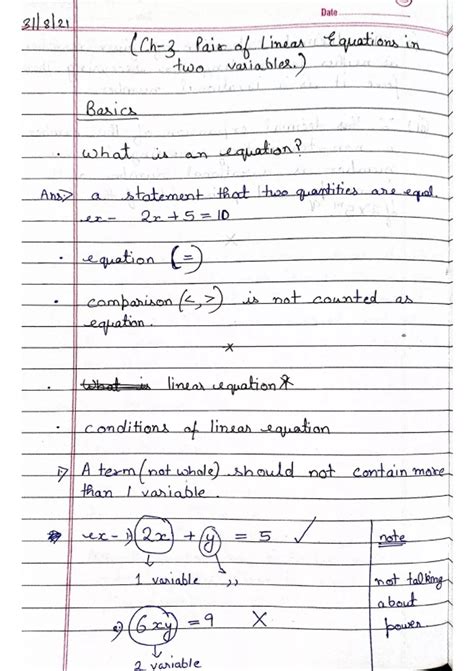 Date
31/8/21
(Ch-3 Pair of Linear Equations in
two variables.)
Basics
· What is an equation?
Ans> a statement that two quantities are equal.
ex- 2x + 5 = 10
x
· equation (=)
· comparison (<, >) is not counted as
equation.
x
· What is linear equation
· conditions of linear equation
1) A term (not whole) should not contain more
than 1 variable.
ex- 1) 2x + y = 5 ✓ note
1 variable ,, not talking
about
2) 6xy = 9 X power.
2 variable